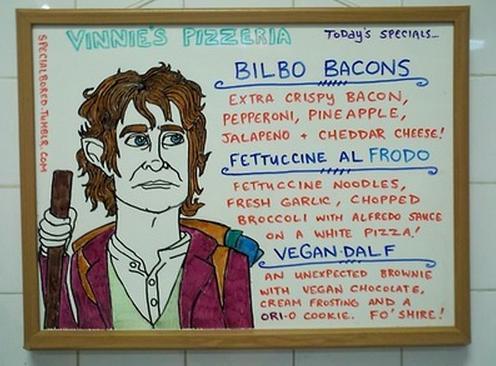 VINNIE'S PIZZERIA
TODAY'S SPECIALS...
SPECIALBORED.TUMBLR.COM
BILBO BACONS
EXTRA CRISPY BACON,
PEPPERONI, PINEAPPLE,
JALAPENO + CHEDDAR CHEESE!
FETTUCCINE AL FRODO
FETTUCCINE NOODLES,
FRESH GARLIC, CHOPPED
BROCCOLI WITH ALFREDO SAUCE
ON A WHITE PIZZA!
VEGAN-DALF
AN UNEXPECTED BROWNIE
WITH VEGAN CHOCOLATE,
CREAM FROSTING AND A
ORI-O COOKIE. FO'SHIRE!